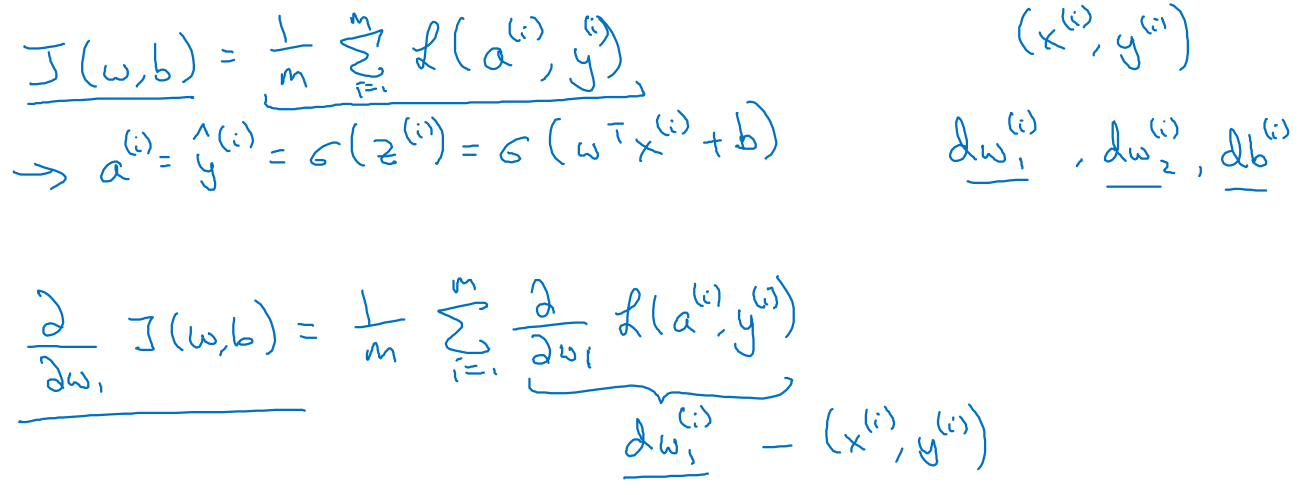 J(w,b) = 1/m Σ_{i=1}^{m} ℒ(a^{(i)}, y^{(i)})
(x^{(i)}, y^{(i)})
→ a^{(i)} = ŷ^{(i)} = σ(z^{(i)}) = σ(w^T x^{(i)} + b)
dw_1^{(i)}, dw_2^{(i)}, db^{(i)}
∂/∂w_1 J(w,b) = 1/m Σ_{i=1}^{m} ∂/∂w_1 ℒ(a^{(i)}, y^{(i)})
dw_1^{(i)} – (x^{(i)}, y^{(i)})